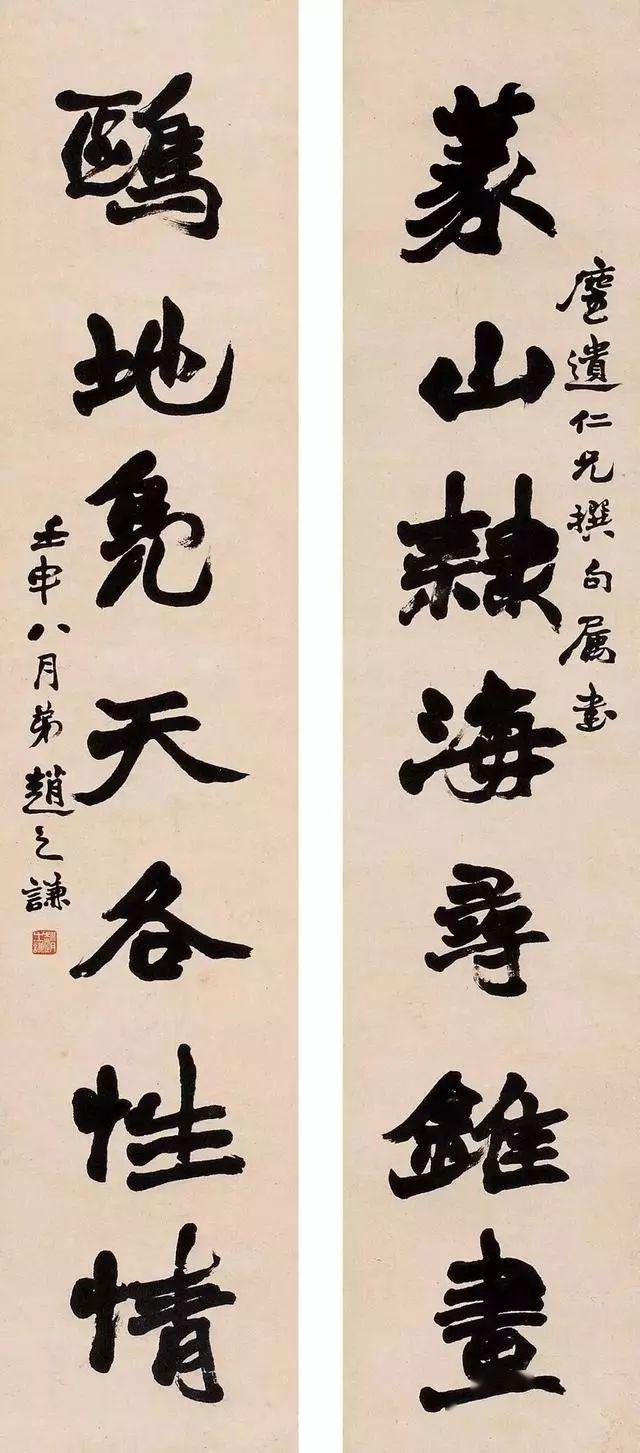 篆山隸海尋錐畫
廑遺仁兄撰句屬書
鷗地鳧天各性情
壬申八月弟趙之謙